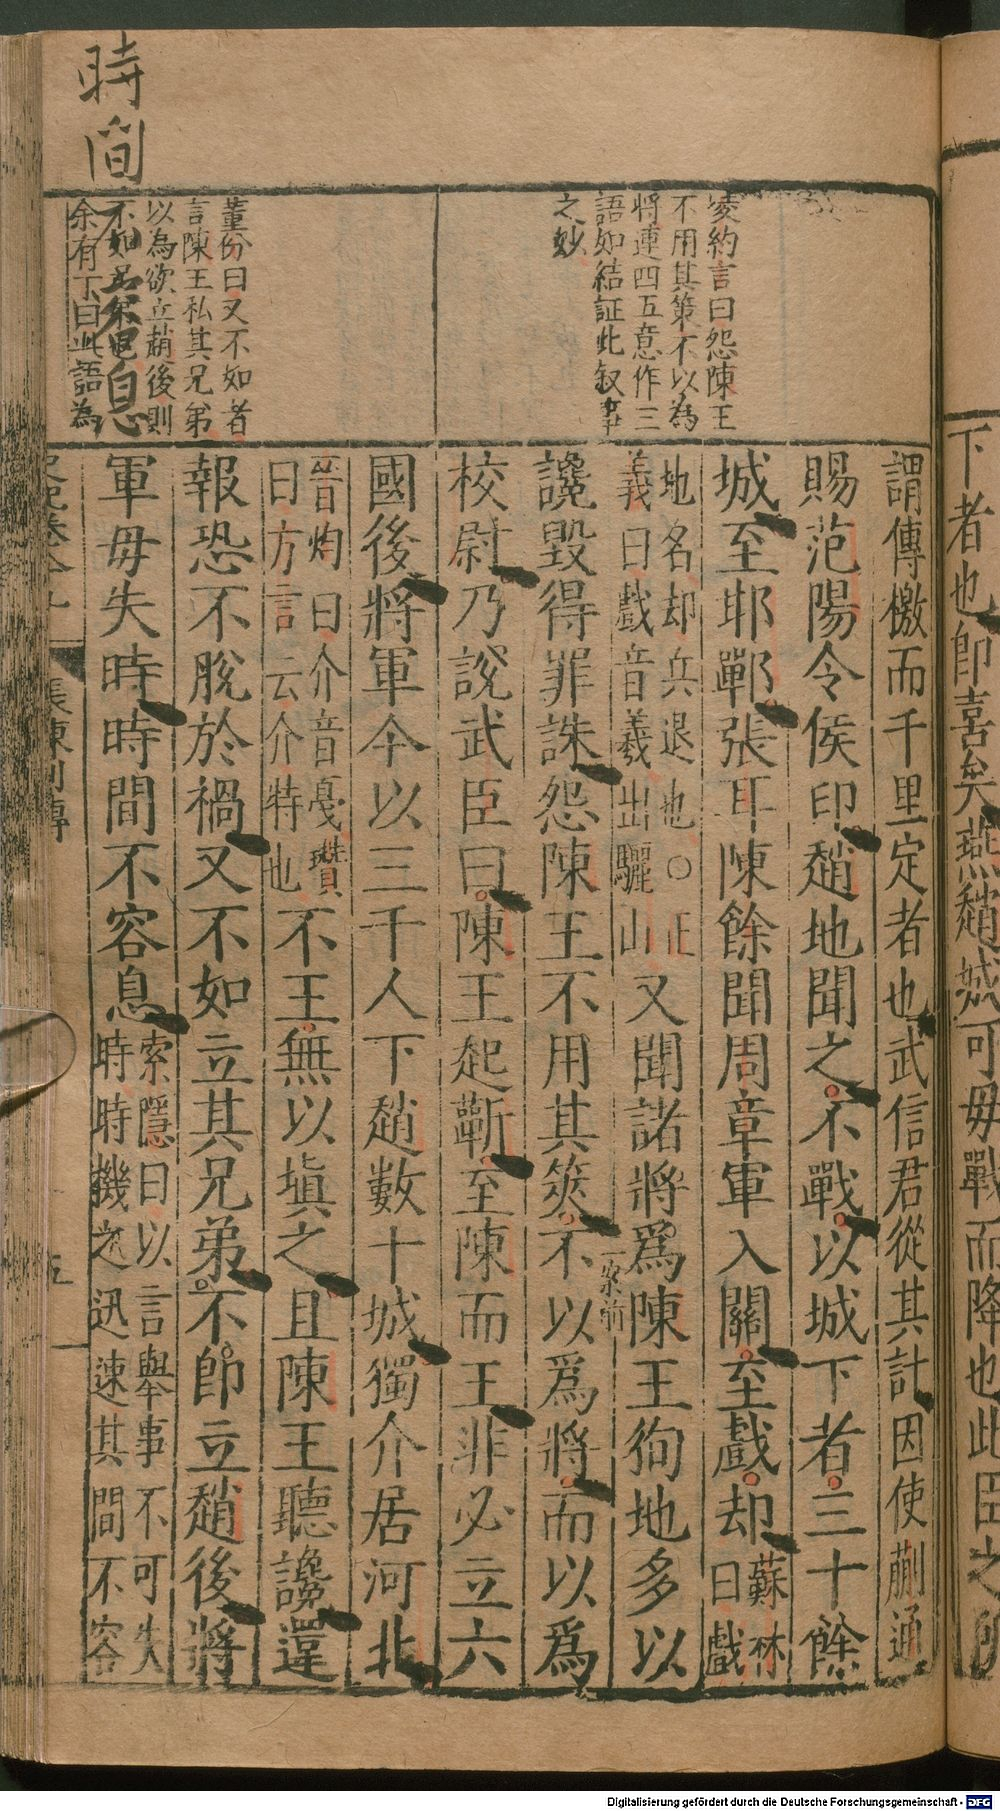 時間
不容息
凌約言曰怨陳王
不用其策不以為
將連四五意作三
語如結証此叙事
之妙
董份曰又不如者
言陳王私其兄弟
以為欲立趙後則
余有丁曰此語為
謂傳檄而千里定者也武信君從其計因使蒯通
賜范陽令侯印趙地聞之不戰以城下者三十餘
城至邯鄲張耳陳餘聞周章軍入關至戲却
蘇林
曰戲
地名却兵退也○正
義曰戲音羲出驪山
又聞諸將爲陳王徇地多以
讒毀得罪誅怨陳王不用其筴不以爲將而以爲
校尉乃說武臣曰陳王起蘄至陳而王非必立六
國後將軍今以三千人下趙數十城獨介居河北
晉灼曰介音戞瓚
曰方言云介特也
不王無以塡之且陳王聽讒還
報恐不脫於禍又不如立其兄弟不即立趙後將
軍毋失時時間不容息
索隱曰以言舉事不可失
時時機之迅速其間不容
五
下者也即喜矣燕趙城可毋戰而降也此臣之所
Digitalisierung gefördert durch die Deutsche Forschungsgemeinschaft - DFG